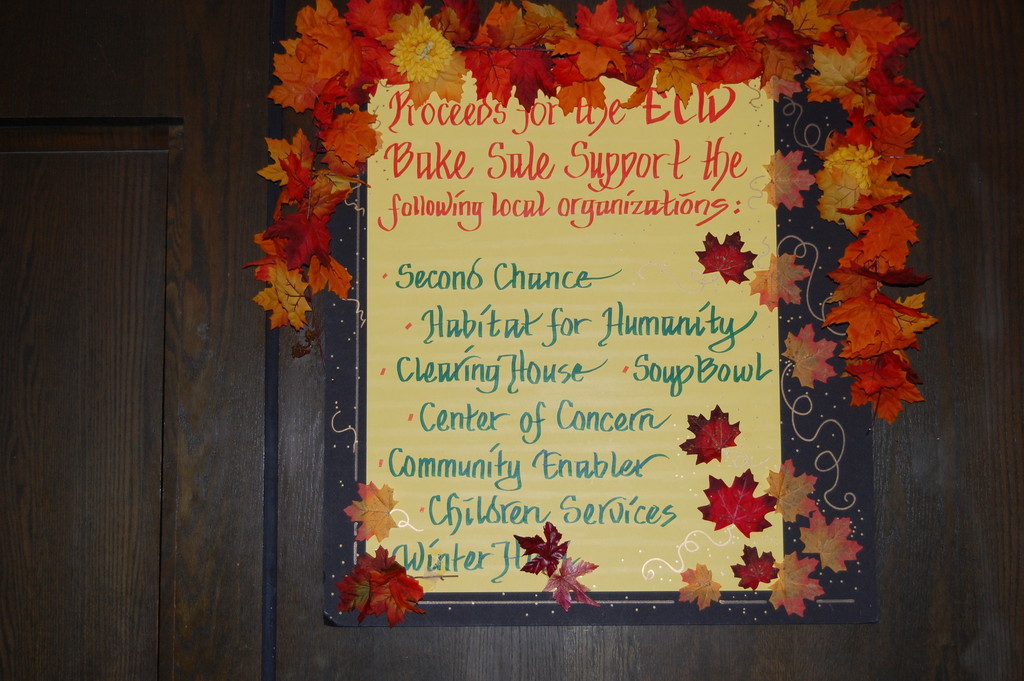 Proceeds for the ECW
Bake Sale Support the
following local organizations:
· Second Chance
· Habitat for Humanity
· Clearing House · Soup Bowl
· Center of Concern
· Community Enabler
· Children Services
Winter